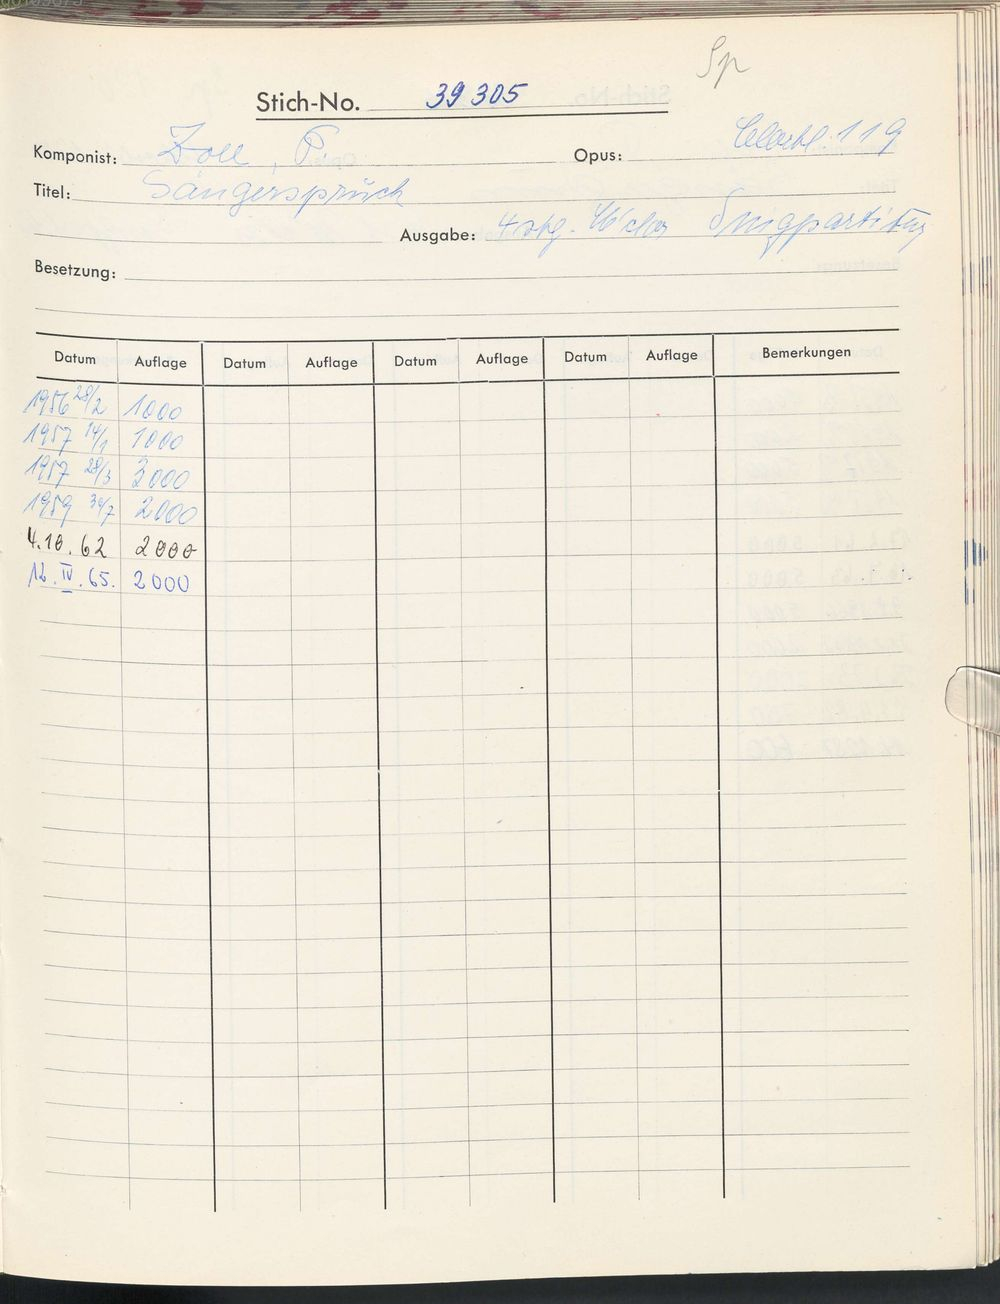 Sp
Stich-No. 39 305
Komponist: Zoll, P. Opus: Chorbl. 119
Titel: Sängerspruch
Ausgabe: 4 stg. Singpartitur
Besetzung:
Datum Auflage Datum Auflage Datum Auflage Datum Auflage Bemerkungen
1956 28/2 1000
1957 14/1 1000
1957 28/3 3000
1959 30/7 2000
4.10.62 2000
12.IV.65. 2000